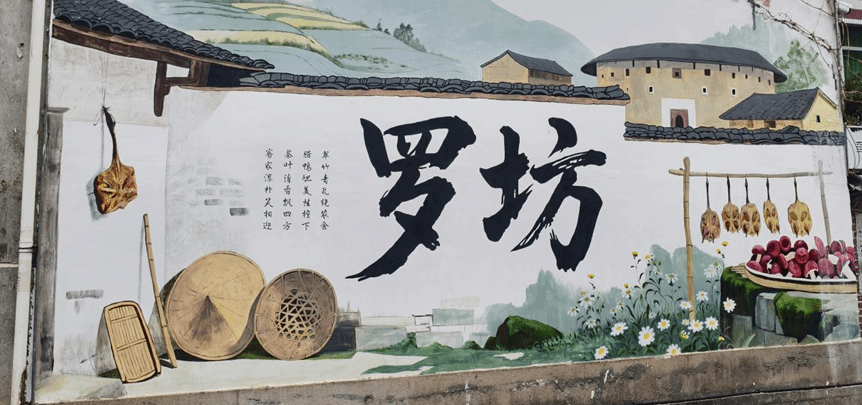 罗坊
翠竹青瓦绕农舍
腊鸭肥美挂檐下
茶叶清香飘四方
客家淳朴笑相迎